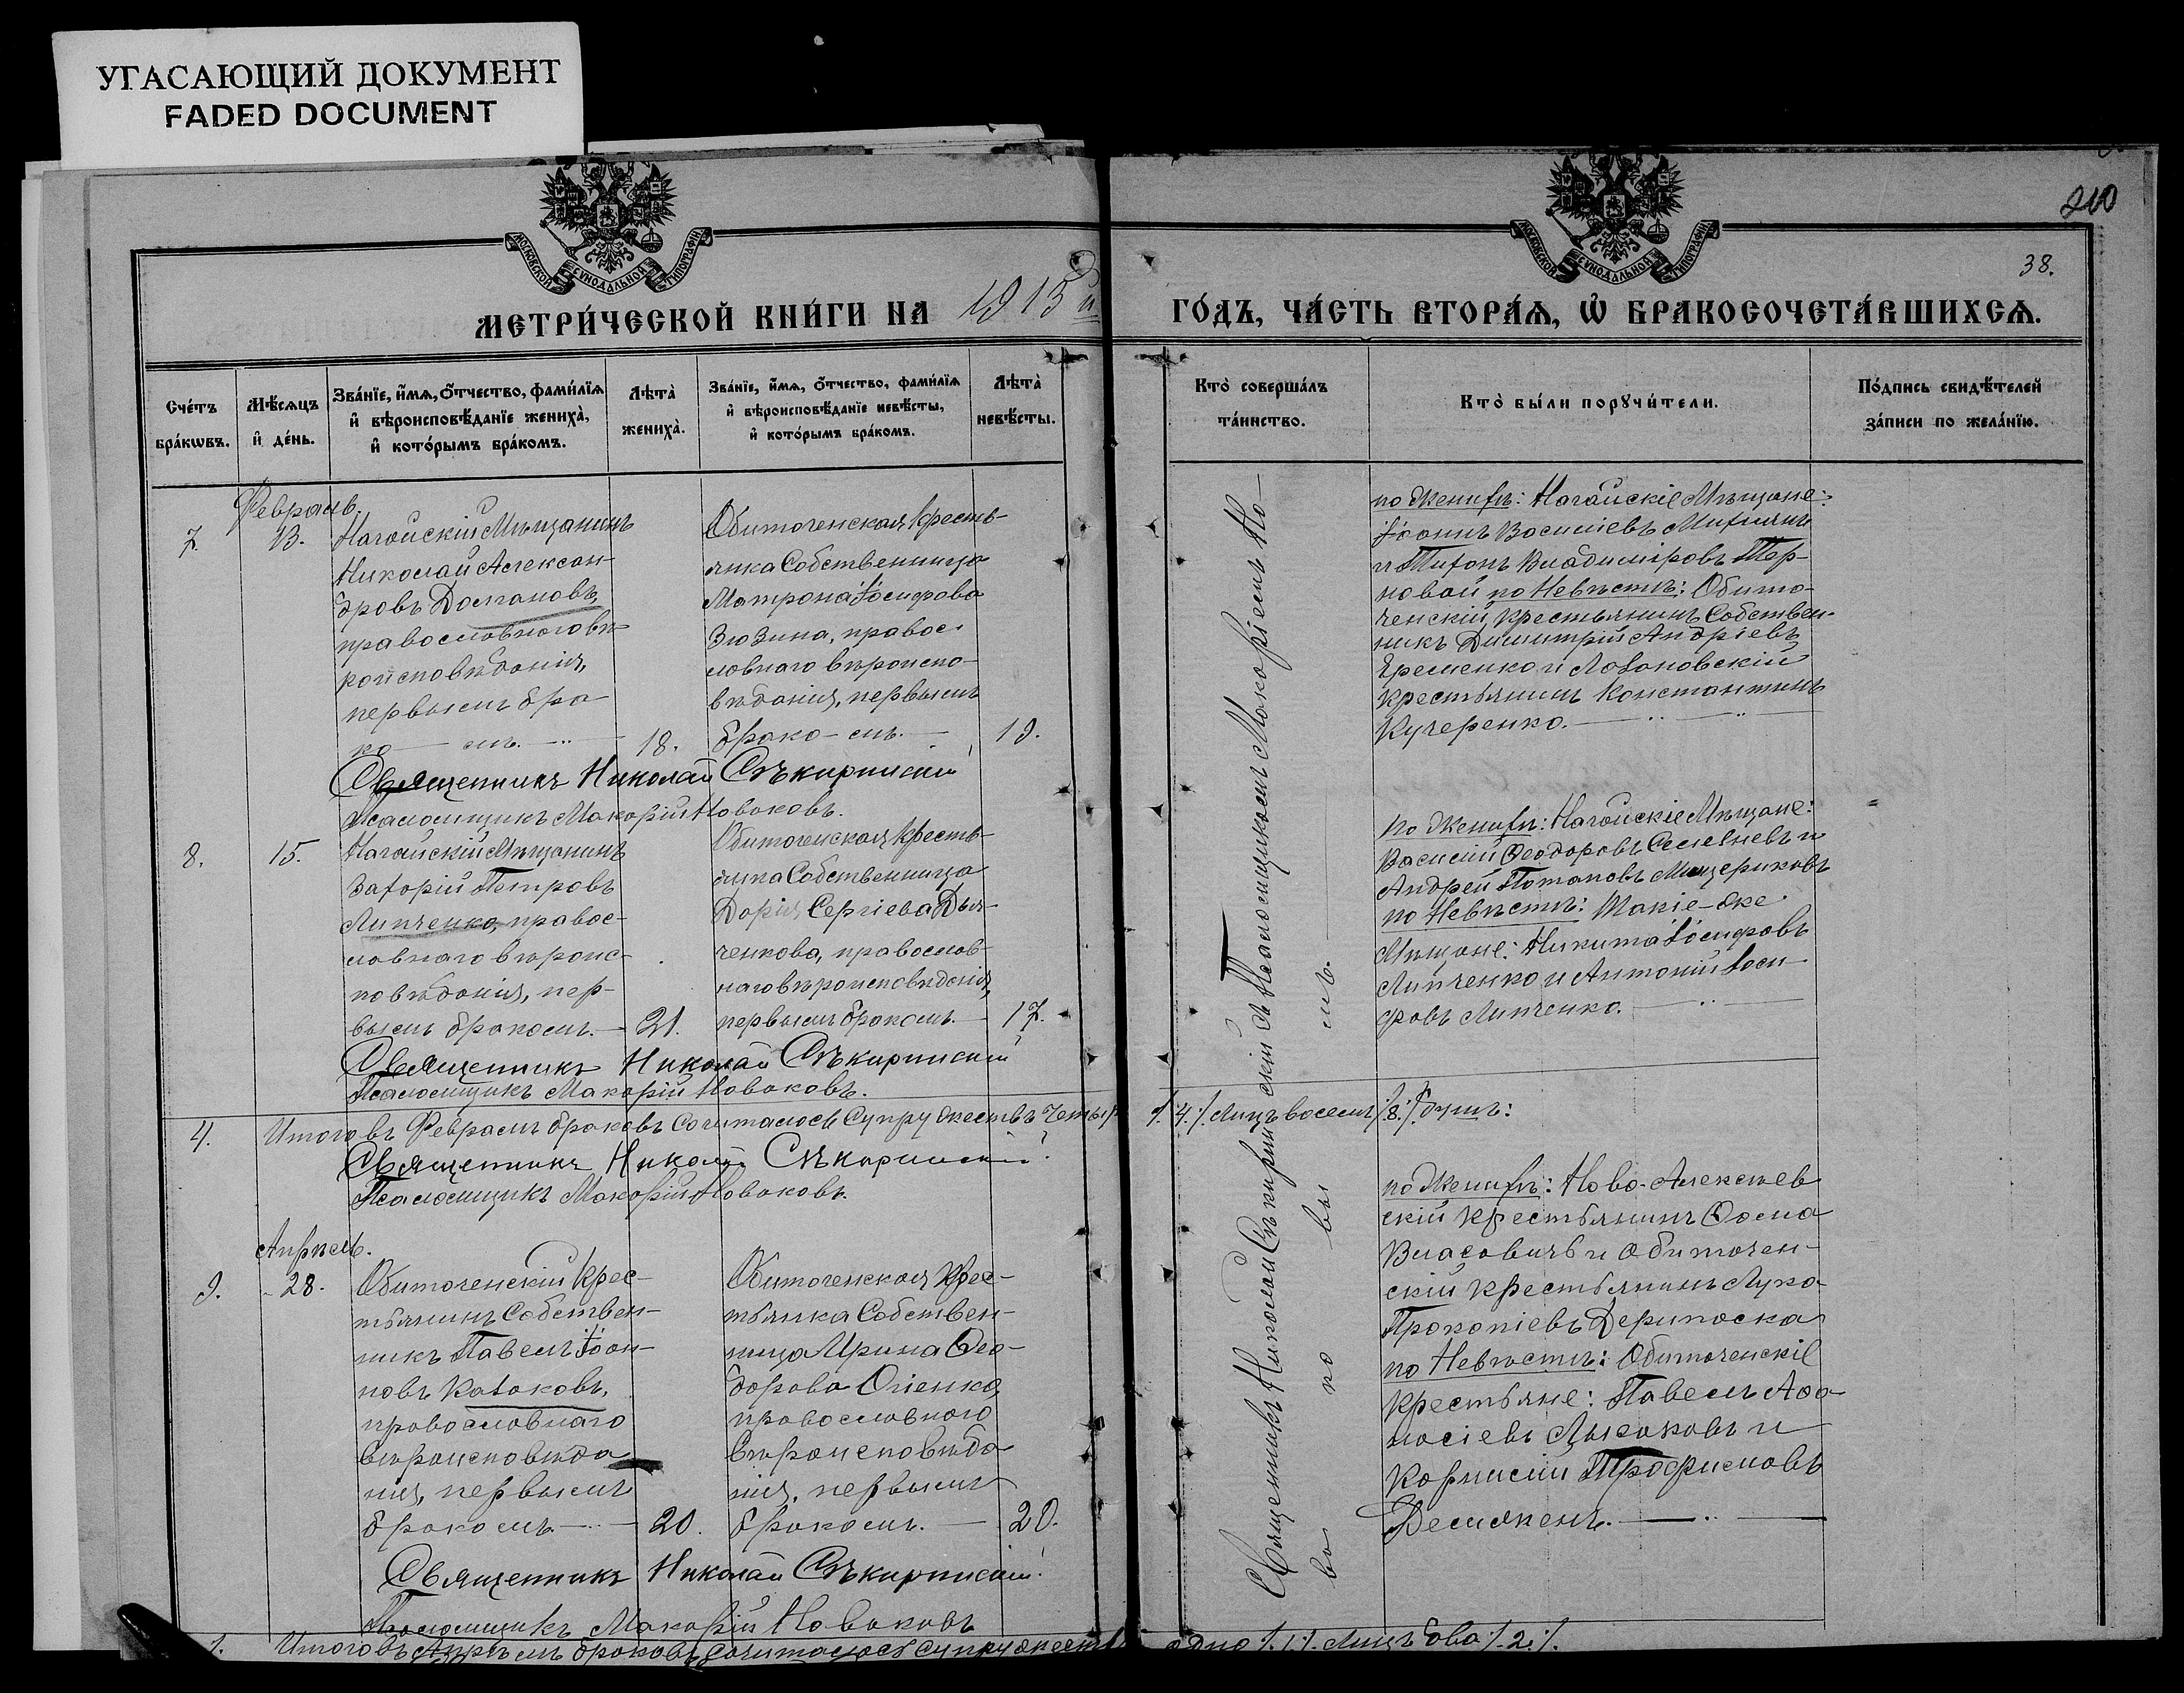 УГАСАЮЩИЙ ДОКУМЕНТ
FADED DOCUMENT
МОСКОВСКОЙ СѴНОДАЛЬНОЙ ТИПОГРАФІИ
МОСКОВСКОЙ СѴНОДАЛЬНОЙ ТИПОГРАФІИ
210
38.
МЕТРИ́ЧЕСКОЙ КНИ́ГИ НА 1915й
ГО́ДЪ, ЧА́СТЬ ВТОРА́Я, Ѡ БРАКОСОЧЕТА́ВШИХСЯ.
Сче́тъ
бра́кѡвъ.
Мѣ́сяцъ
и де́нь.
Зва́нїе, и́мя, о́тчество, фами́лїя
и вѣроисповѣ́данїе жениха̀,
и кото́рымъ бра́комъ.
Лѣта̀
жениха̀.
Зва́нїе, и́мя, о́тчество, фами́лїя
и вѣроисповѣ́данїе невѣ́сты,
и кото́рымъ бра́комъ.
Лѣта̀
невѣ́сты.
Кто̀ соверша́лъ
та́инство.
Кто̀ бы́ли порꙋчи́тели.
По́дпись свидѣ́телей
за́писи по жела́нїю.
Февраль.
7.
13.
Ногайскій Мѣщанинъ
Николай Алексан-
дровъ Долгановъ,
православнаго вѣ-
роисповѣданія,
первымъ бра-
ко— мъ.
18.
Обиточенская Кресть-
янка Собственница
Матрона Іосифова
Зюзина, правос-
лавнаго вѣроиспо-
вѣданія, первымъ
брако-мъ.
19.
по Женихѣ: Ногайскіе Мѣщане:
Іоаннъ Василіевъ
и Тихонъ Владиміровъ Тер-
новой по Невѣстѣ: Обито-
ченскій крестьянинъ Собствен-
никъ Димитрій Андріевъ
Еременко и
крестьянинъ Константинъ
Кучеренко.
Священникъ Николай Сѣкиринскій
Псаломщикъ Макорій Новаковъ.
8.
15.
Ногайскій Мѣщанинъ
Захорій Петровъ
Липченко, правос-
лавнаго вѣроис-
повѣданія, пер-
вымъ бракомъ.
21.
Обиточенская Кресть-
янка Собственница
Дарія Сергіева Дья-
ченкова, православ-
наго вѣроисповѣданія,
первымъ бракомъ.
17.
по Женихѣ: Ногайскіе Мѣщане:
Василій Ѳеодоровъ и
Андрей Потаповъ Мищериковъ
по Невѣстѣ: Такіе-же
Мѣщане: Никита Іосифовъ
Липченко и Антоній Іоси-
фовъ Липченко.
Священникъ Николай Сѣкиринскій
Псаломщикъ Макорій Новаковъ.
4.
Итого въ Февралѣ браковъ Сочиталось Супружествъ четыре /.4./. Лицъ восемь /.8./. душъ:
Священникъ Николай Сѣкиринскій.
Псаломщикъ Макорій Новаковъ.
Апрѣль.
9.
28.
Обиточенскій Крес-
тьянинъ Собствен-
никъ Павелъ Іоан-
новъ Казаковъ,
православнаго
вѣроисповѣда-
нія, первымъ
бракомъ.
20.
Обиточенская Крес-
тьянка Собствен-
ница Ирина Ѳео-
дорова Огіенко,
православнаго
вѣроисповѣда
нія, первымъ
бракомъ.
20.
по Женихѣ: Ново-Алексѣев
скій Крестьянинъ Ѳома
Власовичъ и Обиточен-
скій Крестьянинъ Лука
Прокопіевъ Дерипаска
по Невѣстѣ: Обиточенскіе
Крестьяне: Павелъ Аѳа-
насіевъ Лысаковъ и
Корнилій Трофимовъ
Священникъ Николай Сѣкиринскій съ Псаломщикомъ Макоріемъ Но-
ва ко вы мъ.
Священникъ Николай Сѣкиринскій.
Псаломщикъ Макорій Новаковъ
1. Итого въ Апрѣлѣ браковъ Сочиталось Супружествъ одно /.1./. Лицъ два /.2./.